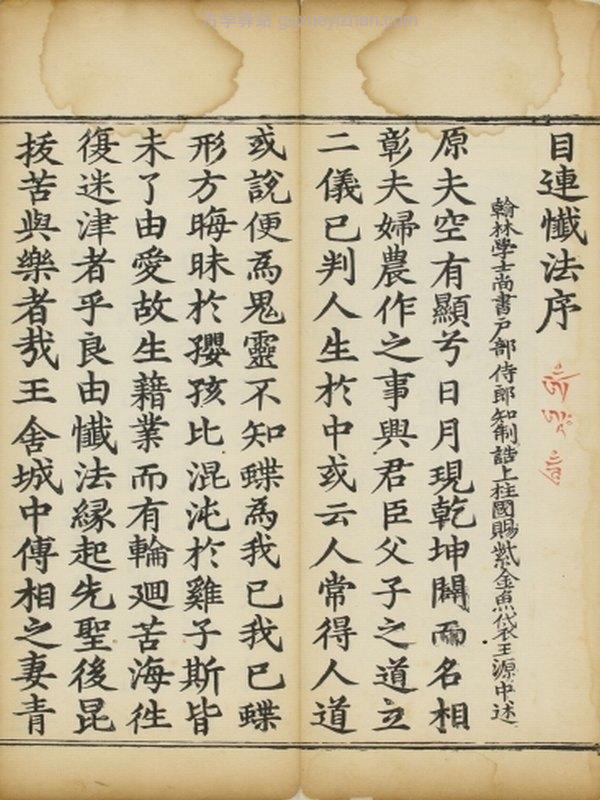 目連懺法序
翰林學士尚書戸部侍郎知制誥上柱國賜紫金魚袋王源中述
原夫空有顯兮日月現乾坤闢而名相
彰夫婦農作之事興君臣父子之道立
二儀已判人生於中或云人常得人道
或說便爲鬼靈不知蝶為我已我已蝶
形方晦昧於孾孩比混沌於雞子斯皆
未了由愛故生藉業而有輪廻苦海徃
復迷津者乎良由懺法緣起先聖後昆
拔苦與樂者㦲王舍城中傅相之妻青